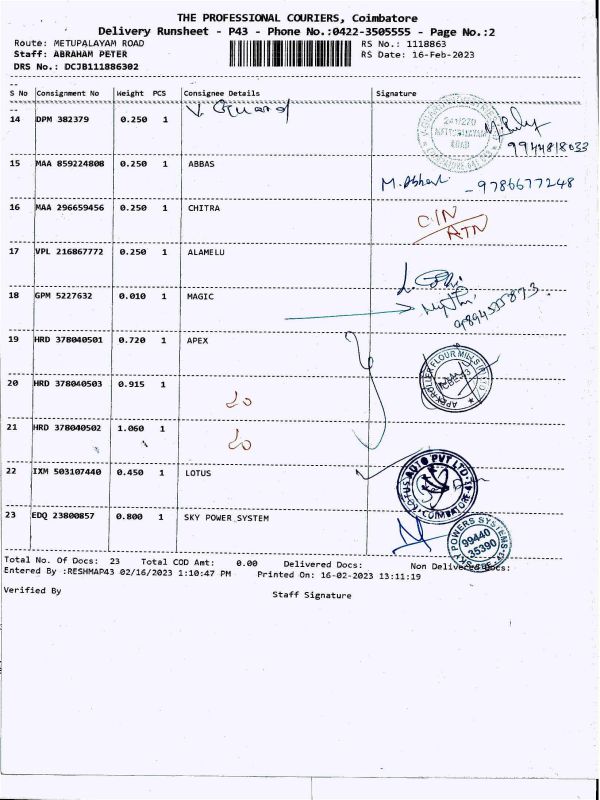 THE PROFESSIONAL COURIERS, Coimbatore
Delivery Runsheet - P43 - Phone No.:0422-3505555 - Page No.:2
Route: METUPALAYAM ROAD RS No.: 1118863
Staff: ABRAHAM PETER RS Date: 16-Feb-2023
DRS No.: DCJB111886302
S No Consignment No Weight PCS Consignee Details Signature
14 DPM 382379 0.250 1 V. Guard
241/270
METTUPALAYAM
ROAD
9944818033
15 MAA 859224808 0.250 1 ABBAS
M. Abbas - 9786677248
16 MAA 296659456 0.250 1 CHITRA
C/N
ATN
17 VPL 216867772 0.250 1 ALAMELU
18 GPM 5227632 0.010 1 MAGIC
9894535873
19 HRD 378040501 0.720 1 APEX
APEX ROLLER FLOUR MILLS
20 HRD 378040503 0.915 1
21 HRD 378040502 1.060 1
22 IXM 503107440 0.450 1 LOTUS
LOTUS AUTO PVT LTD
COIMBATORE
23 EDQ 23800857 0.800 1 SKY POWER SYSTEM
SKY POWERS SYSTEMS
99440
35390
Total No. Of Docs: 23 Total COD Amt: 0.00 Delivered Docs: Non Delivered Docs:
Entered By :RESHMAP43 02/16/2023 1:10:47 PM Printed On: 16-02-2023 13:11:19
Verified By Staff Signature